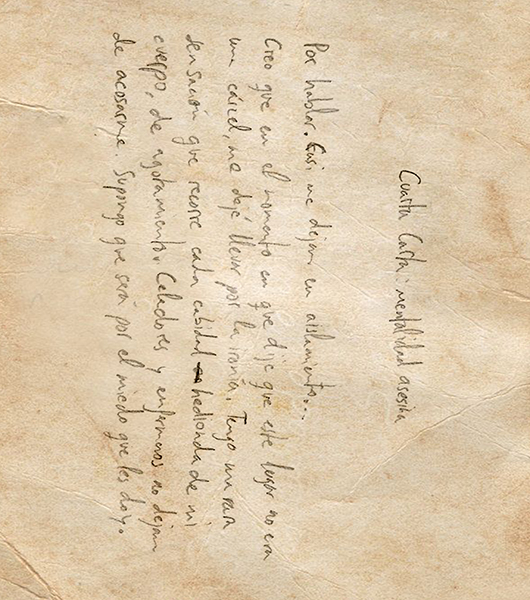 Cuarta Carta: mentalidad asesina
Por hablar. Casi me dejan en aislamiento...
Creo que en el momento en que dije que este lugar no era
una cárcel, me dejé llevar por la ironía. Tengo una rara
sensación que recorre cada cabidad hedionda de mi
cuerpo, de agotamiento. Celadores y enfermeros no dejan
de acosarme. Supongo que será por el miedo que les doy.